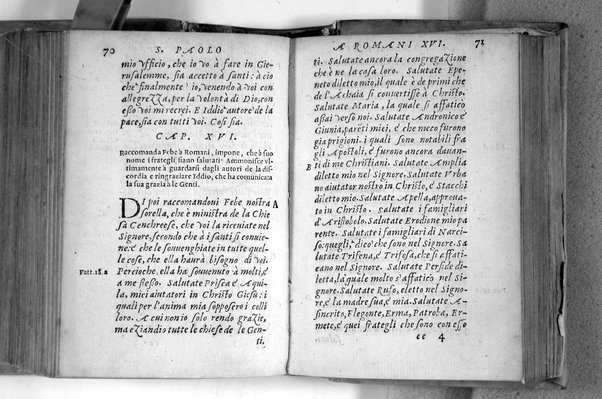 70 S. PAOLO
mio vfficio, che io vo à fare in Gie-
rusalemme, sia accetto à santi: à ciò
che finalmente io, venendo à voi con
allegrezza, per la volontà di Dio, con
esso voi mi recrei. E Iddio autore de la
pace, sia con tutti voi. Cosi sia.
CAP. XVI.
Raccomanda Febe à Romani, impone, che à suo
nome i frategli siano salutati. Ammonisce vl-
timamente à guardarsi dagli autori de la dis-
cordia e ringraziare Iddio, che ha comunicata
la sua grazia à le Genti.
DI poi raccomandoui Febe nostra A
sorella, che è ministra de la Chie
sa Cenchreese, che voi la riceuiate nel
Signore, secondo che à i santi si conuie-
ne: e che le souuenghiate in tutte quel-
le cose, che ella haurà bisogno di voi.
Fatt. 18. a Percioche, ella ha souuenuto à molti, e
à me stesso. Salutate Prisca e Aqui-
la, miei aiutatori in Christo Giesu: i
quali per l'anima mia sopposero i colli
loro. A cui non io solo rendo grazie,
ma eziandio tutte le chiese de le Gen-
ti.
A ROMANI XVI. 71
ti. Salutate ancora la congregazione
che è ne la casa loro. Salutate Epe-
neto diletto mio, il quale è de primi che
de l'Achaia si conuertisse à Christo.
Salutate Maria, la quale si affaticò
assai verso noi. Salutate Andronico e
Giunia, pareti miei, e che meco furono
gia prigioni. i quali sono notabili fra
gli Apostoli, e furono ancora dauan-
B ti di me Christiani. Salutate Amplia
diletto mio nel Signore. Salutate Vrba
no aiutator nostro in Christo, e Stacchi
diletto mio. Salutate Apella, approua-
to in Christo. Salutate i famigliari
d'Aristobolo. Salutate Erodione mio pa
rente. Salutate i famigliari di Narcis-
so: quegli, dico che sono nel Signore. Sa
lutate Trifena, e Trifosa, che si affati-
cano nel Signore. Salutate Perside di-
letta, la quale molto s'affaticò nel Si-
gnore. Salutate Rufo, eletto nel Signo-
re, e la madre sua, e mia. Salutate A-
sincrito, Flegonte, Erma, Patroba, Er-
mete, e quei frategli che sono con esso
ee 4